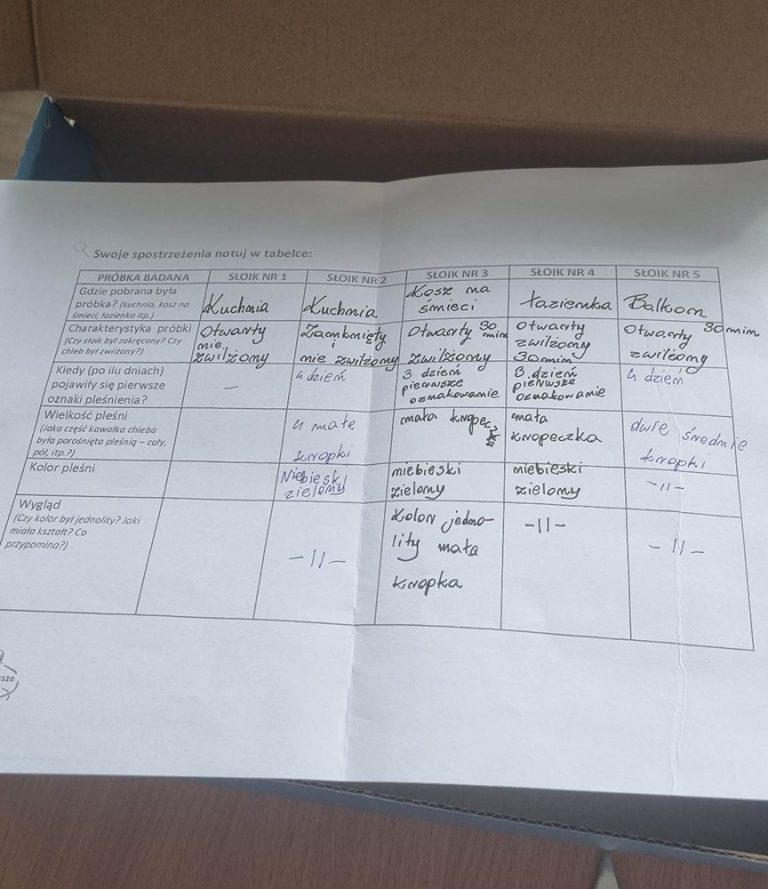 Swoje spostrzeżenia notuj w tabelce:
PRÓBKA BADANA
SŁOIK NR 1
SŁOIK NR 2
SŁOIK NR 3
SŁOIK NR 4
SŁOIK NR 5
Gdzie pobrana była
próbka? (kuchnia, kosz na
śmieci, łazienka itp.)
Kuchnia
Kuchnia
Kosz na
śmieci
Łazienka
Balkon
Charakterystyka próbki
(Czy słoik był zakręcony? Czy
chleb był zwilżony?)
Otwarty
nie
zwilżony
Zamknięty
i
nie zwilżony
Otwarty 30 min
zwilżony
Otwarty
zwilżony
30 min
Otwarty 30 min
zwilżony
Kiedy (po ilu dniach)
pojawiły się pierwsze
oznaki pleśnienia?
—
4 dzień
3 dzień
pierwsze
oznakowanie
3. dzień
pierwsze
oznakowanie
4 dzień
Wielkość pleśni
(Jaka część kawałka chleba
była porośnięta pleśnią – cały,
pół, itp.?)
4 małe
kropki
mała kropecz
ka
mała
kropeczka
dwie średnie
kropki
Kolor pleśni
Niebieski
zielony
niebieski
zielony
niebieski
zielony
-11-
Wygląd
(Czy kolor był jednolity? Jaki
miała kształt? Co
przypomina?)
-11-
Kolor jedno-
lity mała
kropka
-11-
-11-